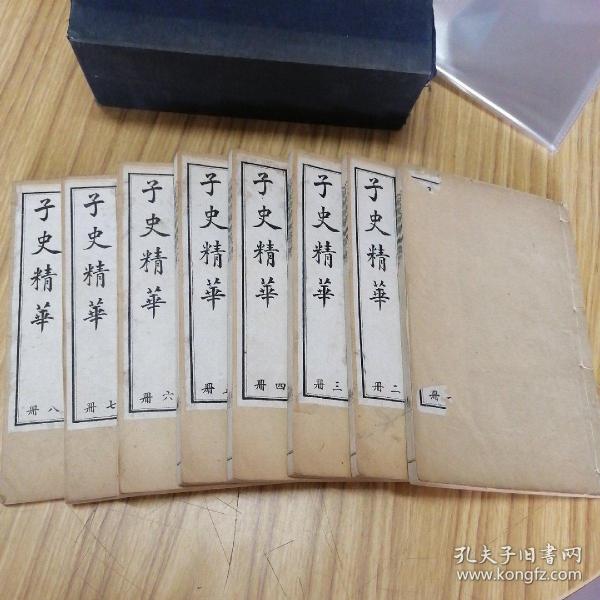 子史精華
八册
子史精華
七册
子史精華
六册
子史精華
册
子史精華
四册
子史精華
三册
子史精華
二册
册
孔夫子旧書网
www.kongfz.com